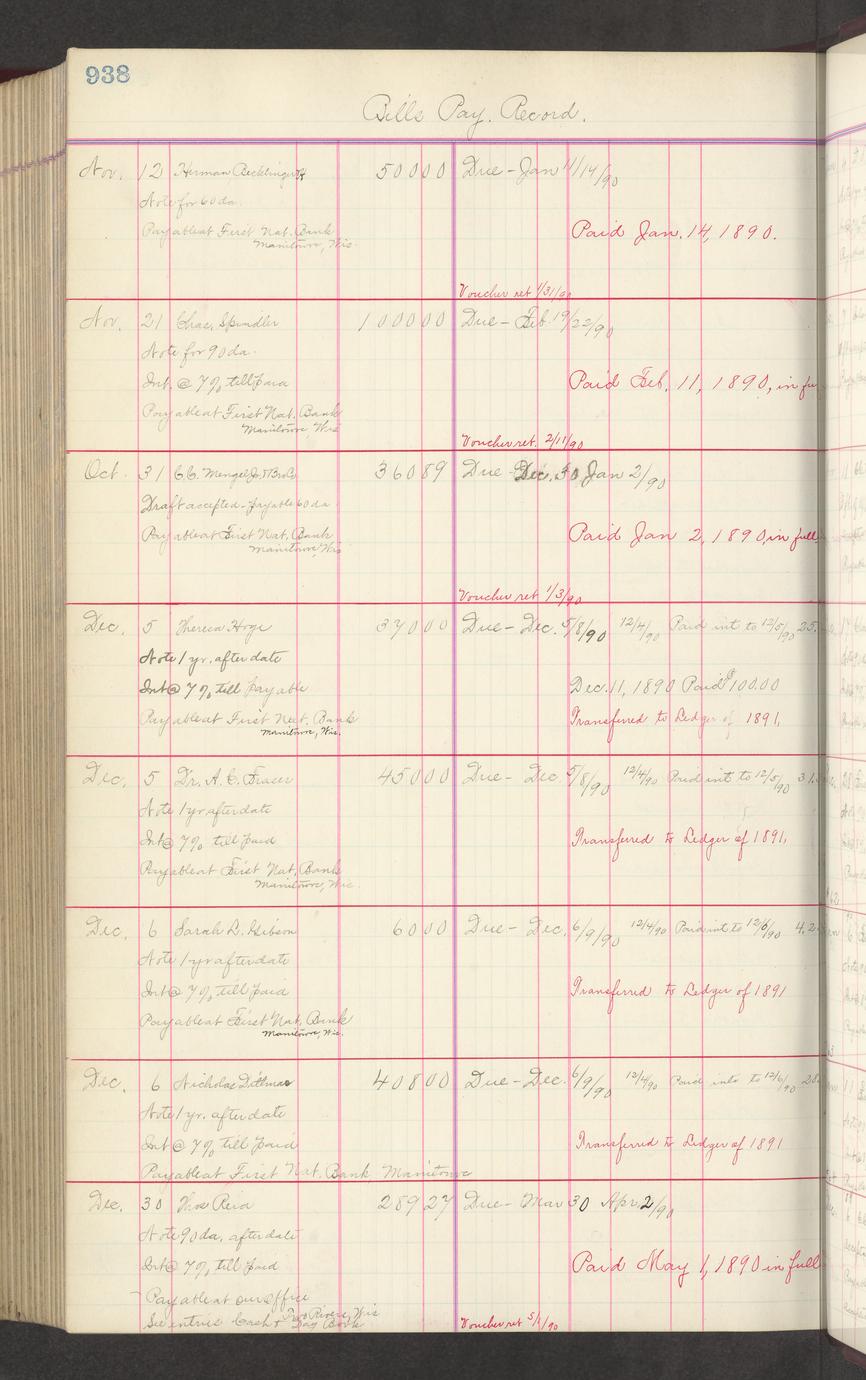 938
Bills Pay. Record.
Nov. 12 Herman 50000 Due - Jan 11/14/90
Note for 60 da.
Payable at First Nat. Bank
Manitowoc, Wis.
Paid Jan. 14, 1890.
Voucher ret 1/31/90
Nov. 21 Chas. Spindler 100000 Due - Feb. 19/22/90
Note for 90 da.
Int. @ 7% till paid
Paid Feb. 11, 1890, in fu
Payable at First Nat. Bank
Manitowoc, Wis
Voucher ret. 2/11/90
Oct. 31 C.C. Mengel Jr. & Bro Co 36089 Due - Dec. 30 Jan 2/90
Draft accepted - payable 60 da
Payable at First Nat. Bank
Manitowoc, Wis
Paid Jan 2, 1890, in full
Voucher ret 1/3/90
Dec. 5 Theresa Hoge 37000 Due - Dec. 5/8/90 12/4/90 Paid int to 12/5/90 25.
Note 1 yr. after date
Int @ 7% till payable
Dec. 11, 1890 Paid $100.00
Payable at First Nat. Bank
Manitowoc, Wis.
Transferred to Ledger of 1891,
Dec. 5 Dr. A. C. Fraser 45000 Due - Dec. 5/8/90 12/4/90 Paid int to 12/5/90 31.
Note 1 yr after date
Int @ 7% till paid
Transferred to Ledger of 1891,
Payable at First Nat. Bank
Manitowoc, Wis.
Dec. 6 Sarah L. Gibson 6000 Due - Dec. 6/9/90 12/4/90 Paid int to 12/6/90 4.2
Note 1 yr after date
Int @ 7% till paid
Transferred to Ledger of 1891
Payable at First Nat. Bank
Manitowoc, Wis.
Dec. 6 Nicholas Dittmar 40800 Due - Dec. 6/9/90 12/4/90 Paid into to 12/6/90 28.
Note 1 yr. after date
Int @ 7% till paid
Transferred to Ledger of 1891
Payable at First Nat. Bank Manitowoc
Dec. 30 Thos Reid 28927 Due - Mar 30 Apr. 2/90
Note 90 da. after date
Int @ 7% till paid
Paid May 1, 1890 in full
Payable at our office
Two Rivers, Wis
See entries Cash & Day Book
Voucher ret 5/1/90